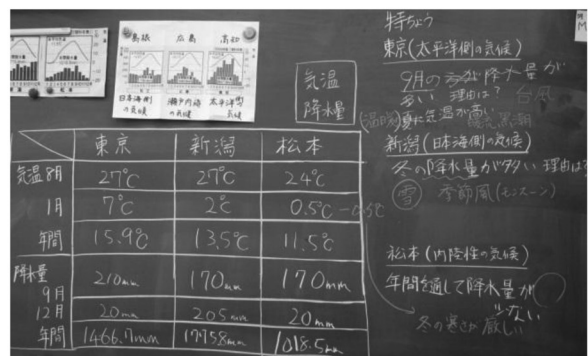 島根 広島 高知
日本海側の気候
瀬戸内海の気候
太平洋型気候
気温
降水量
東京 新潟 松本
気温 8月 27℃ 27℃ 24℃
1月 7℃ 2℃ 0.5℃ -0.5℃
年間 15.9℃ 13.5℃ 11.5℃
降水量
9月 210mm 170mm 170mm
12月 20mm 205mm 20mm
年間 1466.7mm 1775.8mm 1018.5mm
特ちょう
東京(太平洋側の気候)
9月の 降水量が
多い 理由は? 台風
夏に気温が高い
新潟(日本海側の気候)
冬の降水量が多い 理由は?
雪 季節風(モンスーン)
松本(内陸性の気候)
年間を通して降水量が
少ない
冬の寒さが厳しい